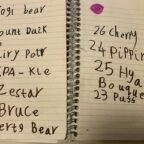 ogi bear
ount Duik
iry Pott
PA-Kle
Zestar
Bruce
erts Bear
26 Cherry
24 PiPPin
25 Hya
Bouque
23 Puss